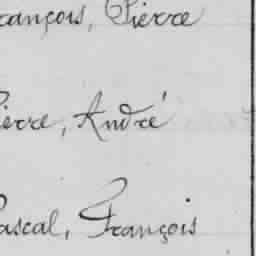 rançois, Pierre
ierre, André
ascal, François